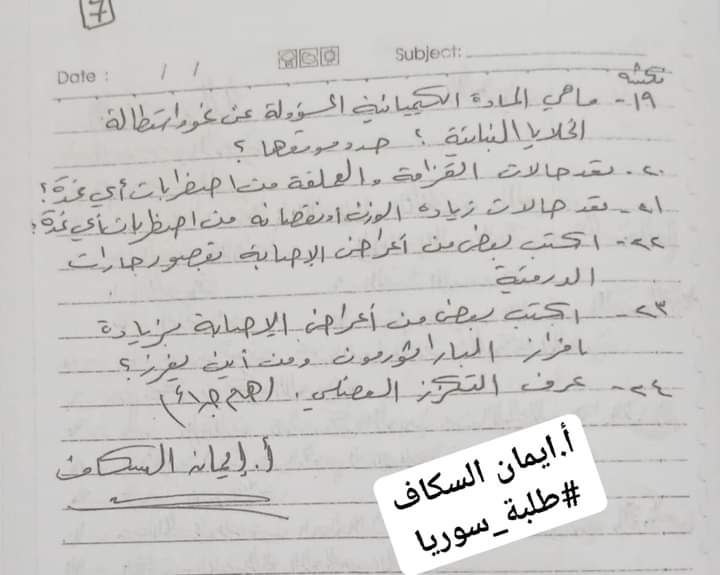 7
Date : / / Subject:
تكملة
١٩- ماهي المادة الكيميائية المسؤولة عن نمو واستطالة
الخلايا النباتية ؟ حدد موقعها ؟
٢٠- تعد حالات القزامة والعملقة من اضطرابات أي غدة؟
٢١- تعد حالات زيادة الوزن أو نقصانه من اضطرابات أي غدة؟
٢٢- اكتب بعض من أعراض الإصابة بقصور جارات
الدرقية
٢٣- اكتب بعض من أعراض الإصابة بزيادة
افراز الباراثورمون ومن أين يفرز؟
٢٤- عرف التكزز العضلي.
أ. إيمان السكاف
أ.ايمان السكاف
#طلبة_سوريا